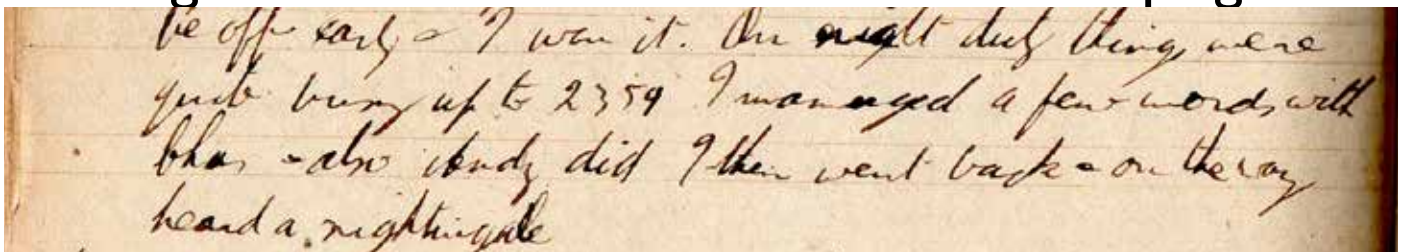 be off early & I won it. On night duty things were
quite busy up to 2359 I managed a few words with
Chas - also Andy did I then went back & on the way
heard a nightingale